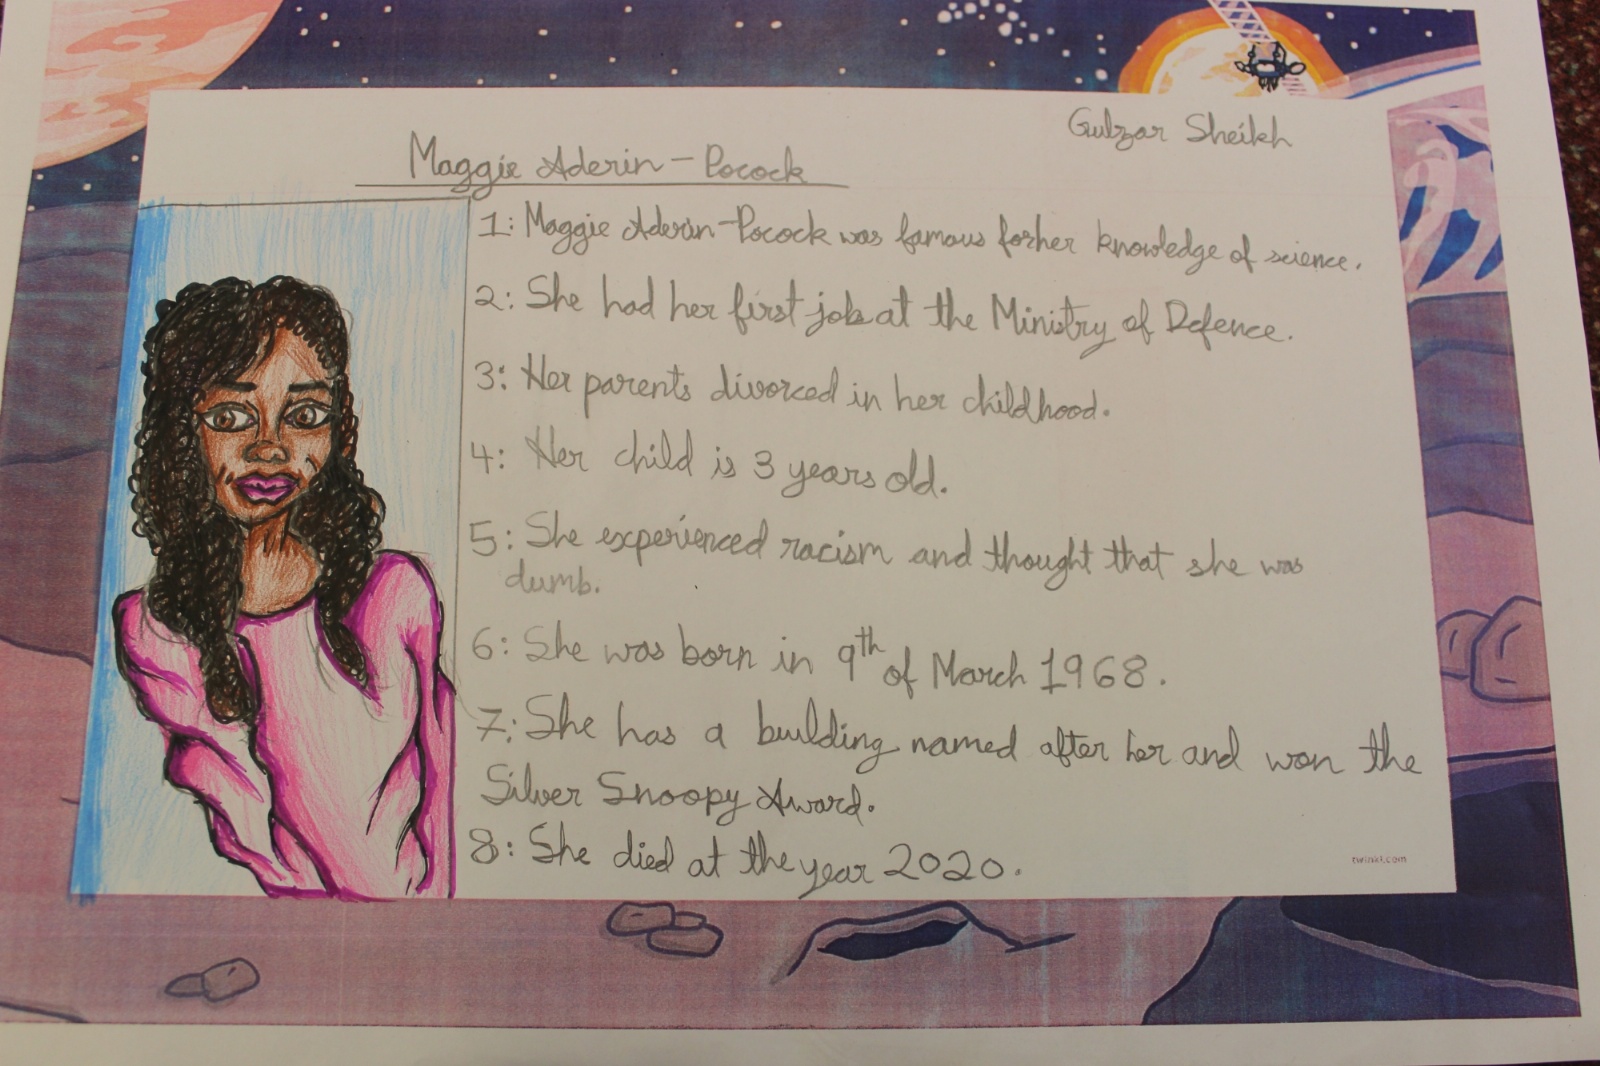 Gulzar Sheikh
Maggie Aderin-Pocock
1: Maggie Aderin-Pocock was famous for her knowledge of science.
2: She had her first job at the Ministry of Defence.
3: Her parents divorced in her childhood.
4: Her child is 3 years old.
5: She experienced racism and thought that she was
dumb.
6: She was born in 9th of March 1968.
7: She has a building named after her and won the
Silver Snoopy Award.
8: She died at the year 2020.
twinkl.com